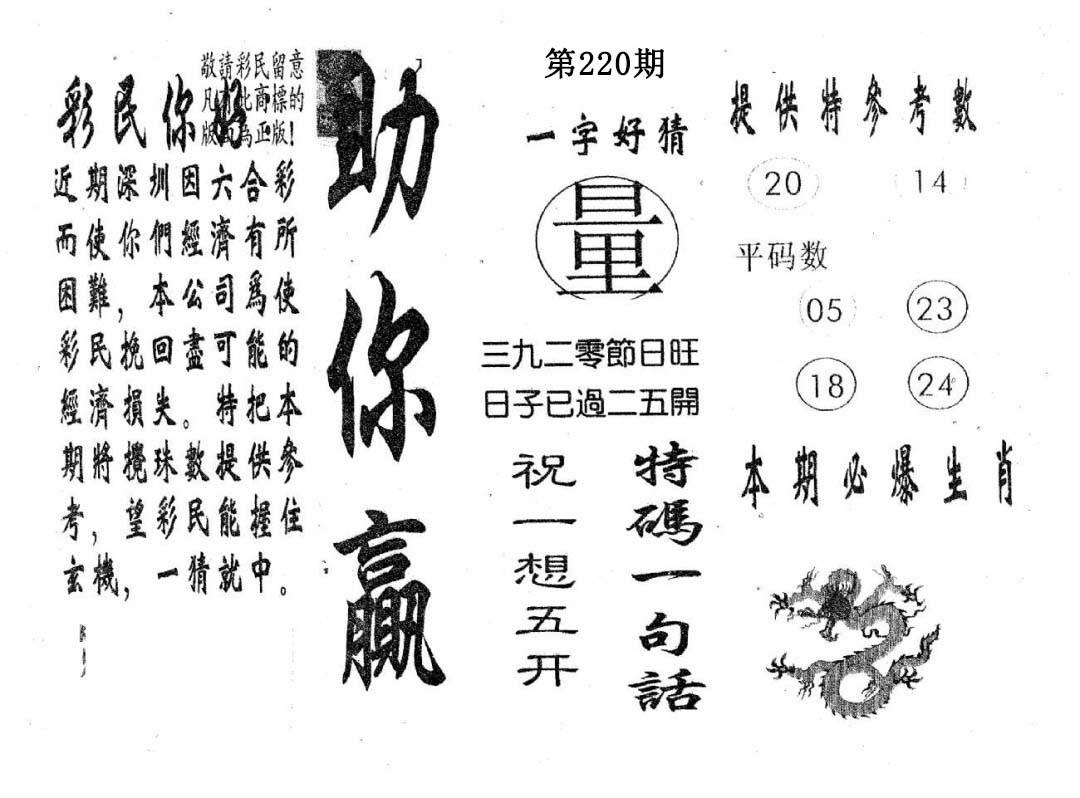 第220期
敬請彩民留意
凡有此商標的
版面為正版！
彩民你好
近期深圳因六合彩
而使你們經濟有所
困難，本公司爲使
彩民挽回盡可能的
經濟損失。特把本
期將攪珠數提供參
考，望彩民能握住
玄機，一猜就中。
助你贏
一字好猜
量
三九二零節日旺
日子已過二五開
特碼一句話
祝一想五开
提供特參考數
20 14
平码数
05 23
18 24
本期必爆生肖